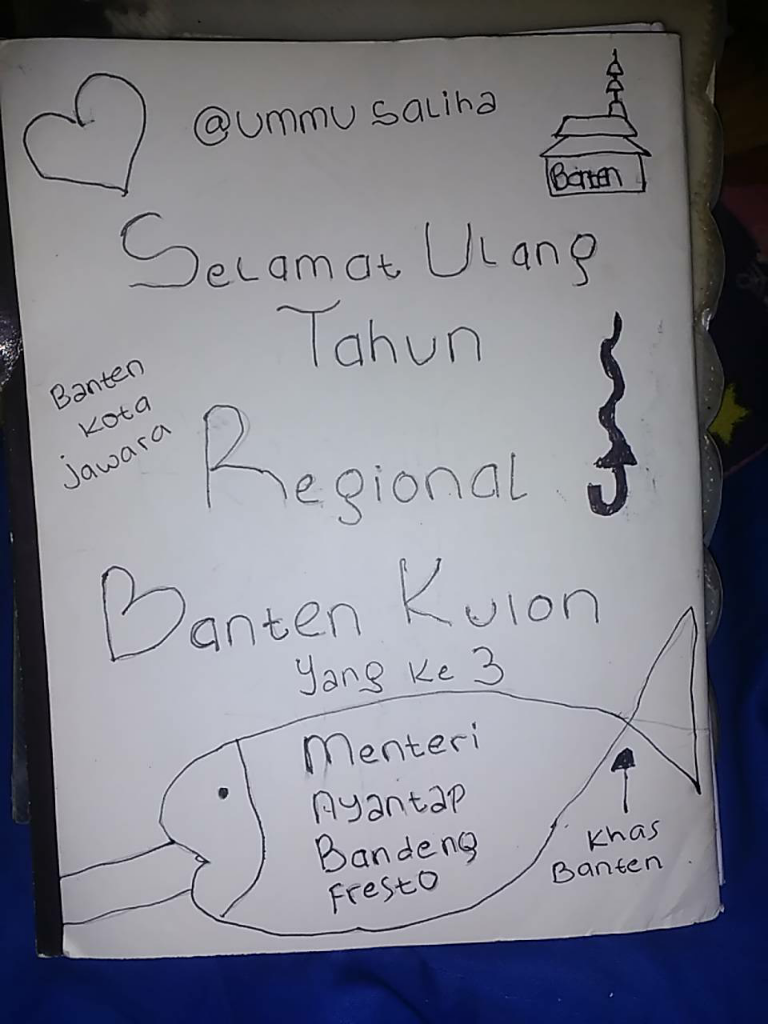 @ummu saliha
Banten
Selamat Ulang
Tahun
Banten
Kota
jawara
Regional
Banten Kulon
yang ke 3
Menteri
Ayantap
Bandeng
Fresto
Khas
Banten